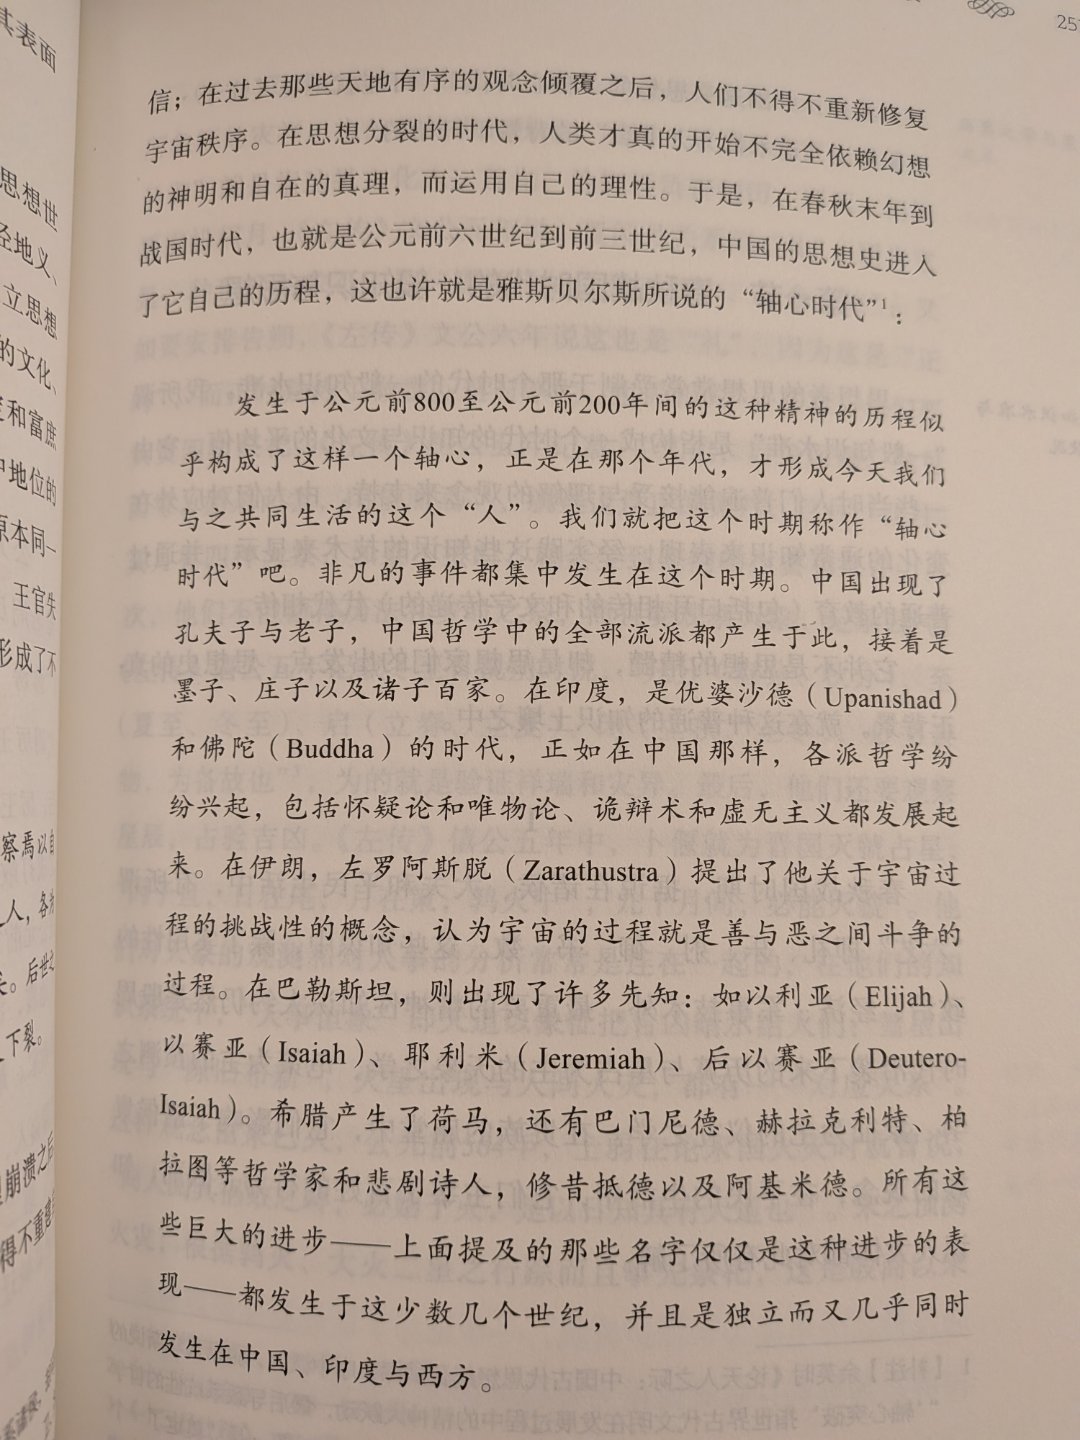 信；在过去那些天地有序的观念倾覆之后，人们不得不重新修复
宇宙秩序。在思想分裂的时代，人类才真的开始不完全依赖幻想
的神明和自在的真理，而运用自己的理性。于是，在春秋末年到
战国时代，也就是公元前六世纪到前三世纪，中国的思想史进入
了它自己的历程，这也许就是雅斯贝尔斯所说的“轴心时代”1：
发生于公元前800至公元前200年间的这种精神的历程似
乎构成了这样一个轴心，正是在那个年代，才形成今天我们
与之共同生活的这个“人”。我们就把这个时期称作“轴心
时代”吧。非凡的事件都集中发生在这个时期。中国出现了
孔夫子与老子，中国哲学中的全部流派都产生于此，接着是
墨子、庄子以及诸子百家。在印度，是优婆沙德（Upanishad）
和佛陀（Buddha）的时代，正如在中国那样，各派哲学纷
纷兴起，包括怀疑论和唯物论、诡辩术和虚无主义都发展起
来。在伊朗，左罗阿斯脱（Zarathustra）提出了他关于宇宙过
程的挑战性的概念，认为宇宙的过程就是善与恶之间斗争的
过程。在巴勒斯坦，则出现了许多先知：如以利亚（Elijah）、
以赛亚（Isaiah）、耶利米（Jeremiah）、后以赛亚（Deutero-
Isaiah）。希腊产生了荷马，还有巴门尼德、赫拉克利特、柏
拉图等哲学家和悲剧诗人，修昔抵德以及阿基米德。所有这
些巨大的进步——上面提及的那些名字仅仅是这种进步的表
现——都发生于这少数几个世纪，并且是独立而又几乎同时
发生在中国、印度与西方。
其表面
思想世
经地义、
立思想
的文化、
和富庶
地位的
原本同一
王官失
形成了不
察焉以自
人，各
。后世之
下裂。
崩溃之后
得不重建